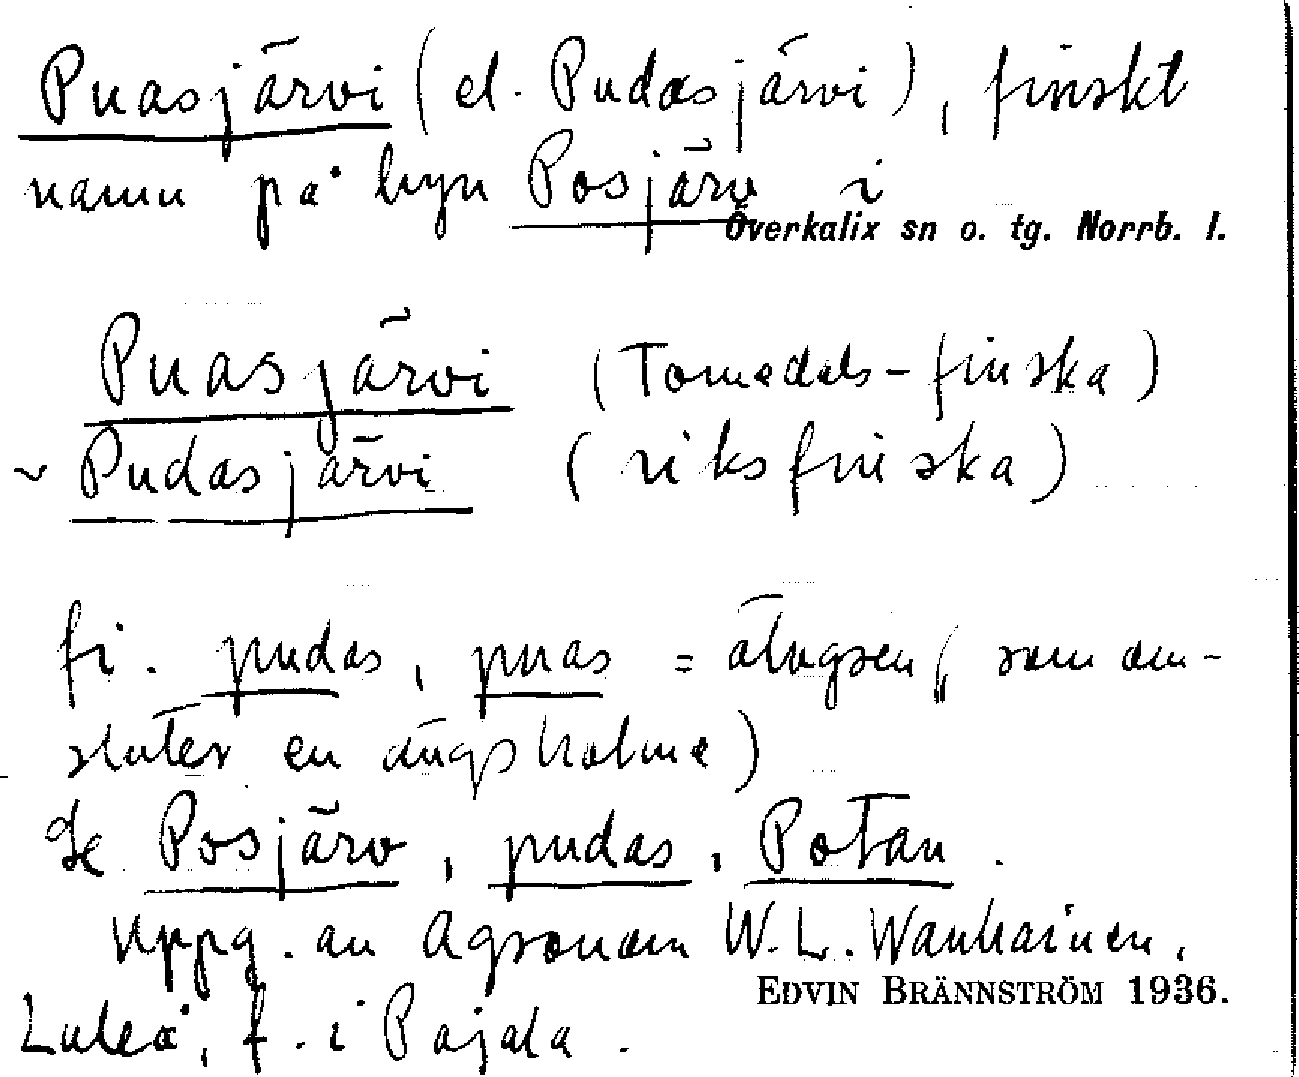 Puasjärvi (el. Pudasjärvi), finskt
namn på byn Posjärv i
Överkalix sn o. tg. Norrb. l.
Puasjärvi (Tornedals-finska)
~ Pudasjärvi (riksfinska)
fi. pudas, puas = älvgren (som om-
sluter en ängsholme)
Se Posjärv, pudas, Potan.
Uppg. av Agronom W. L. Wanhainen,
EDVIN BRÄNNSTRÖM 1936.
Luleå, f. i Pajala.